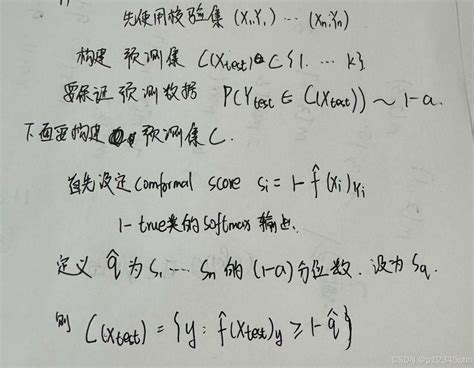 先使用校验集 (X₁,Y₁) ⋯ (Xn,Yn)
构建 预测集 C(Xtest) ⊂ {1. ⋯ k}
要保证 预测数据 P(Ytest ∈ C(Xtest)) ~ 1-a.
下面要构建 预测集C.
首先设定 comformal score si = 1-f̂(xi)yi
1- true类的softmax 输出.
定义 q̂ 为 s₁ ⋯ sn 的 (1-a)分位数. 设为 Sq.
则 C(xtest) = {y: f̂(xtest)y ≥ 1-q̂}
CSDN @p12345phn